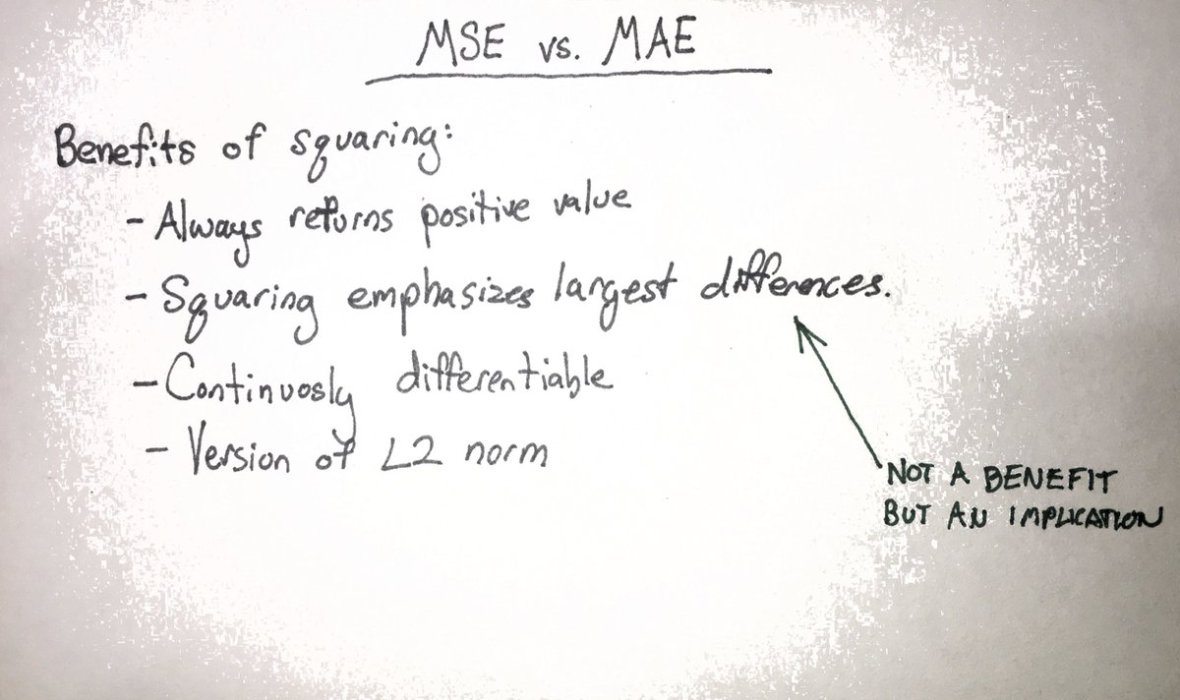 MSE vs. MAE
Benefits of squaring:
- Always returns positive value
- Squaring emphasizes largest differences.
- Continuosly differentiable
- Version of L2 norm
NOT A BENEFIT
BUT AN IMPLICATION